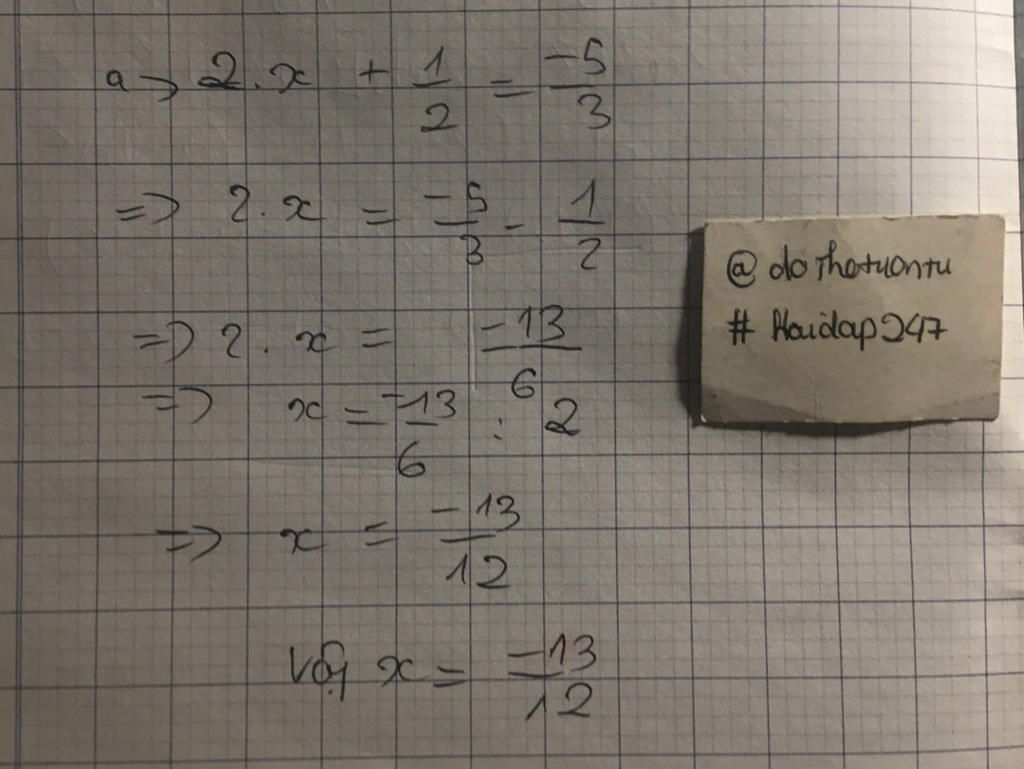 a→ 2.x + 1/2 = -5/3
=> 2.x = -5/3 - 1/2
=> 2.x = -13/6
=> x = -13/6 : 2
=> x = -13/12
Vậy x = -13/12
@dothetuantu
#Hoidap247